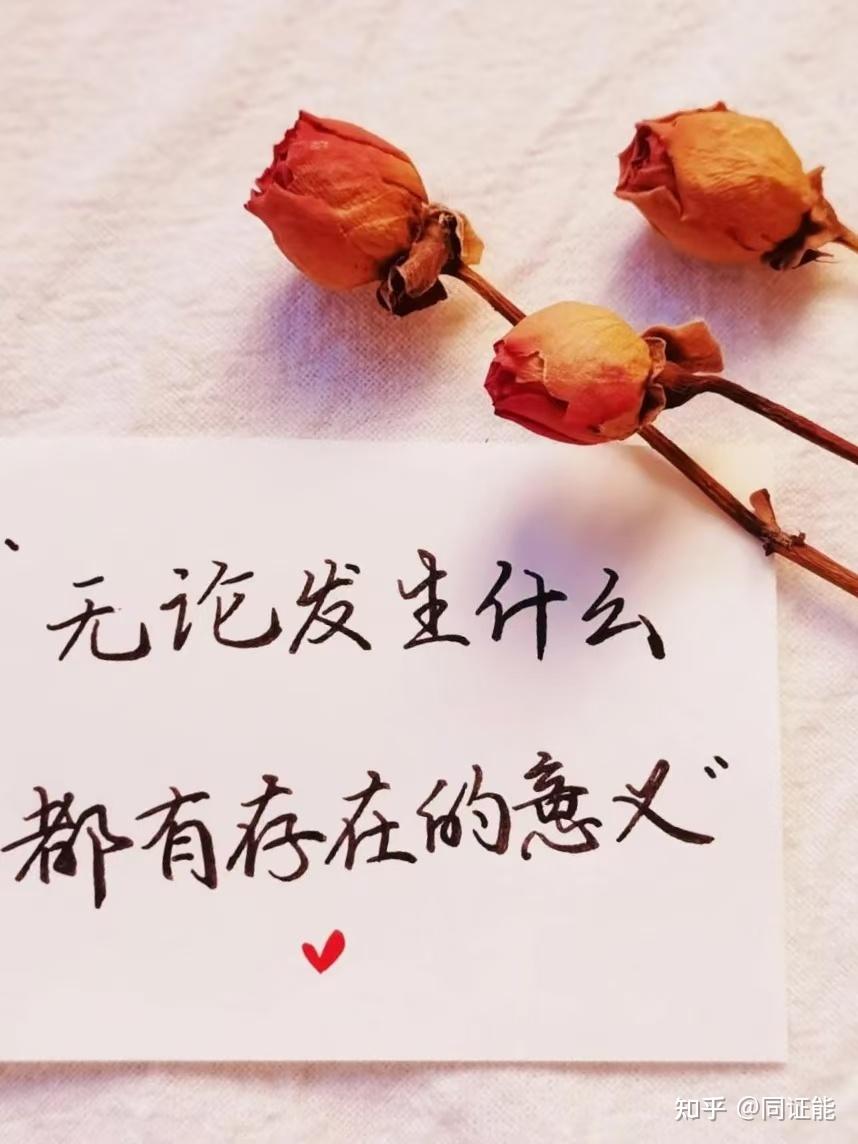 “无论发生什么
都有存在的意义”
知乎 @同证能